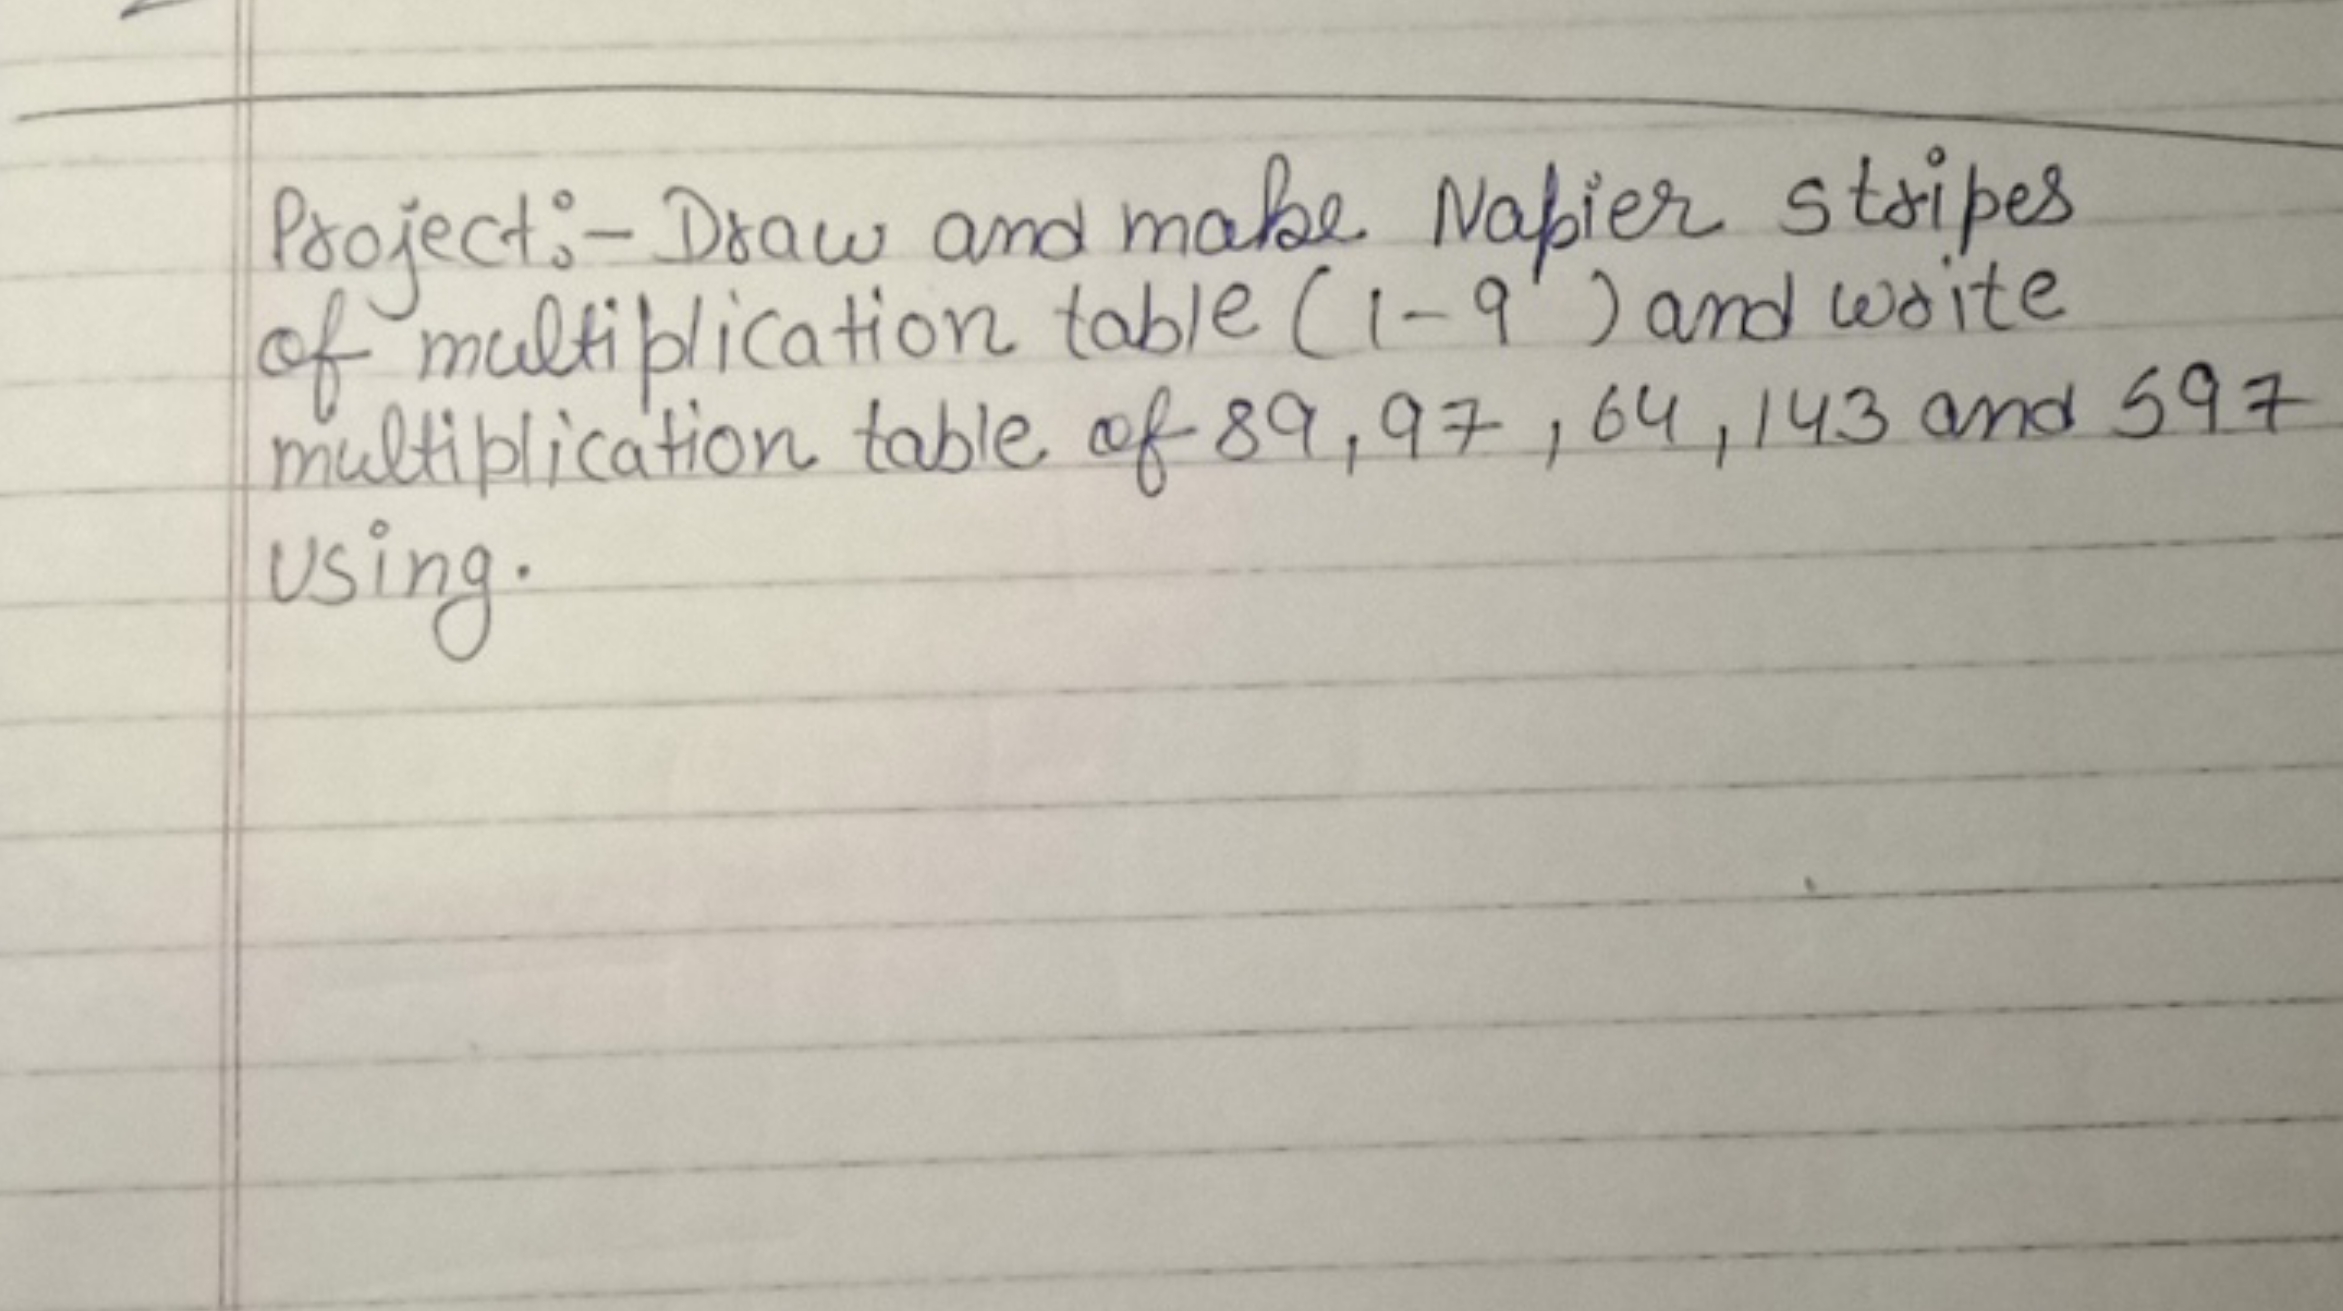 Project:- Draw and make Napier stripes
of multiplication table (1-9) and write
multiplication table of 89, 97, 64, 143 and 597
using.